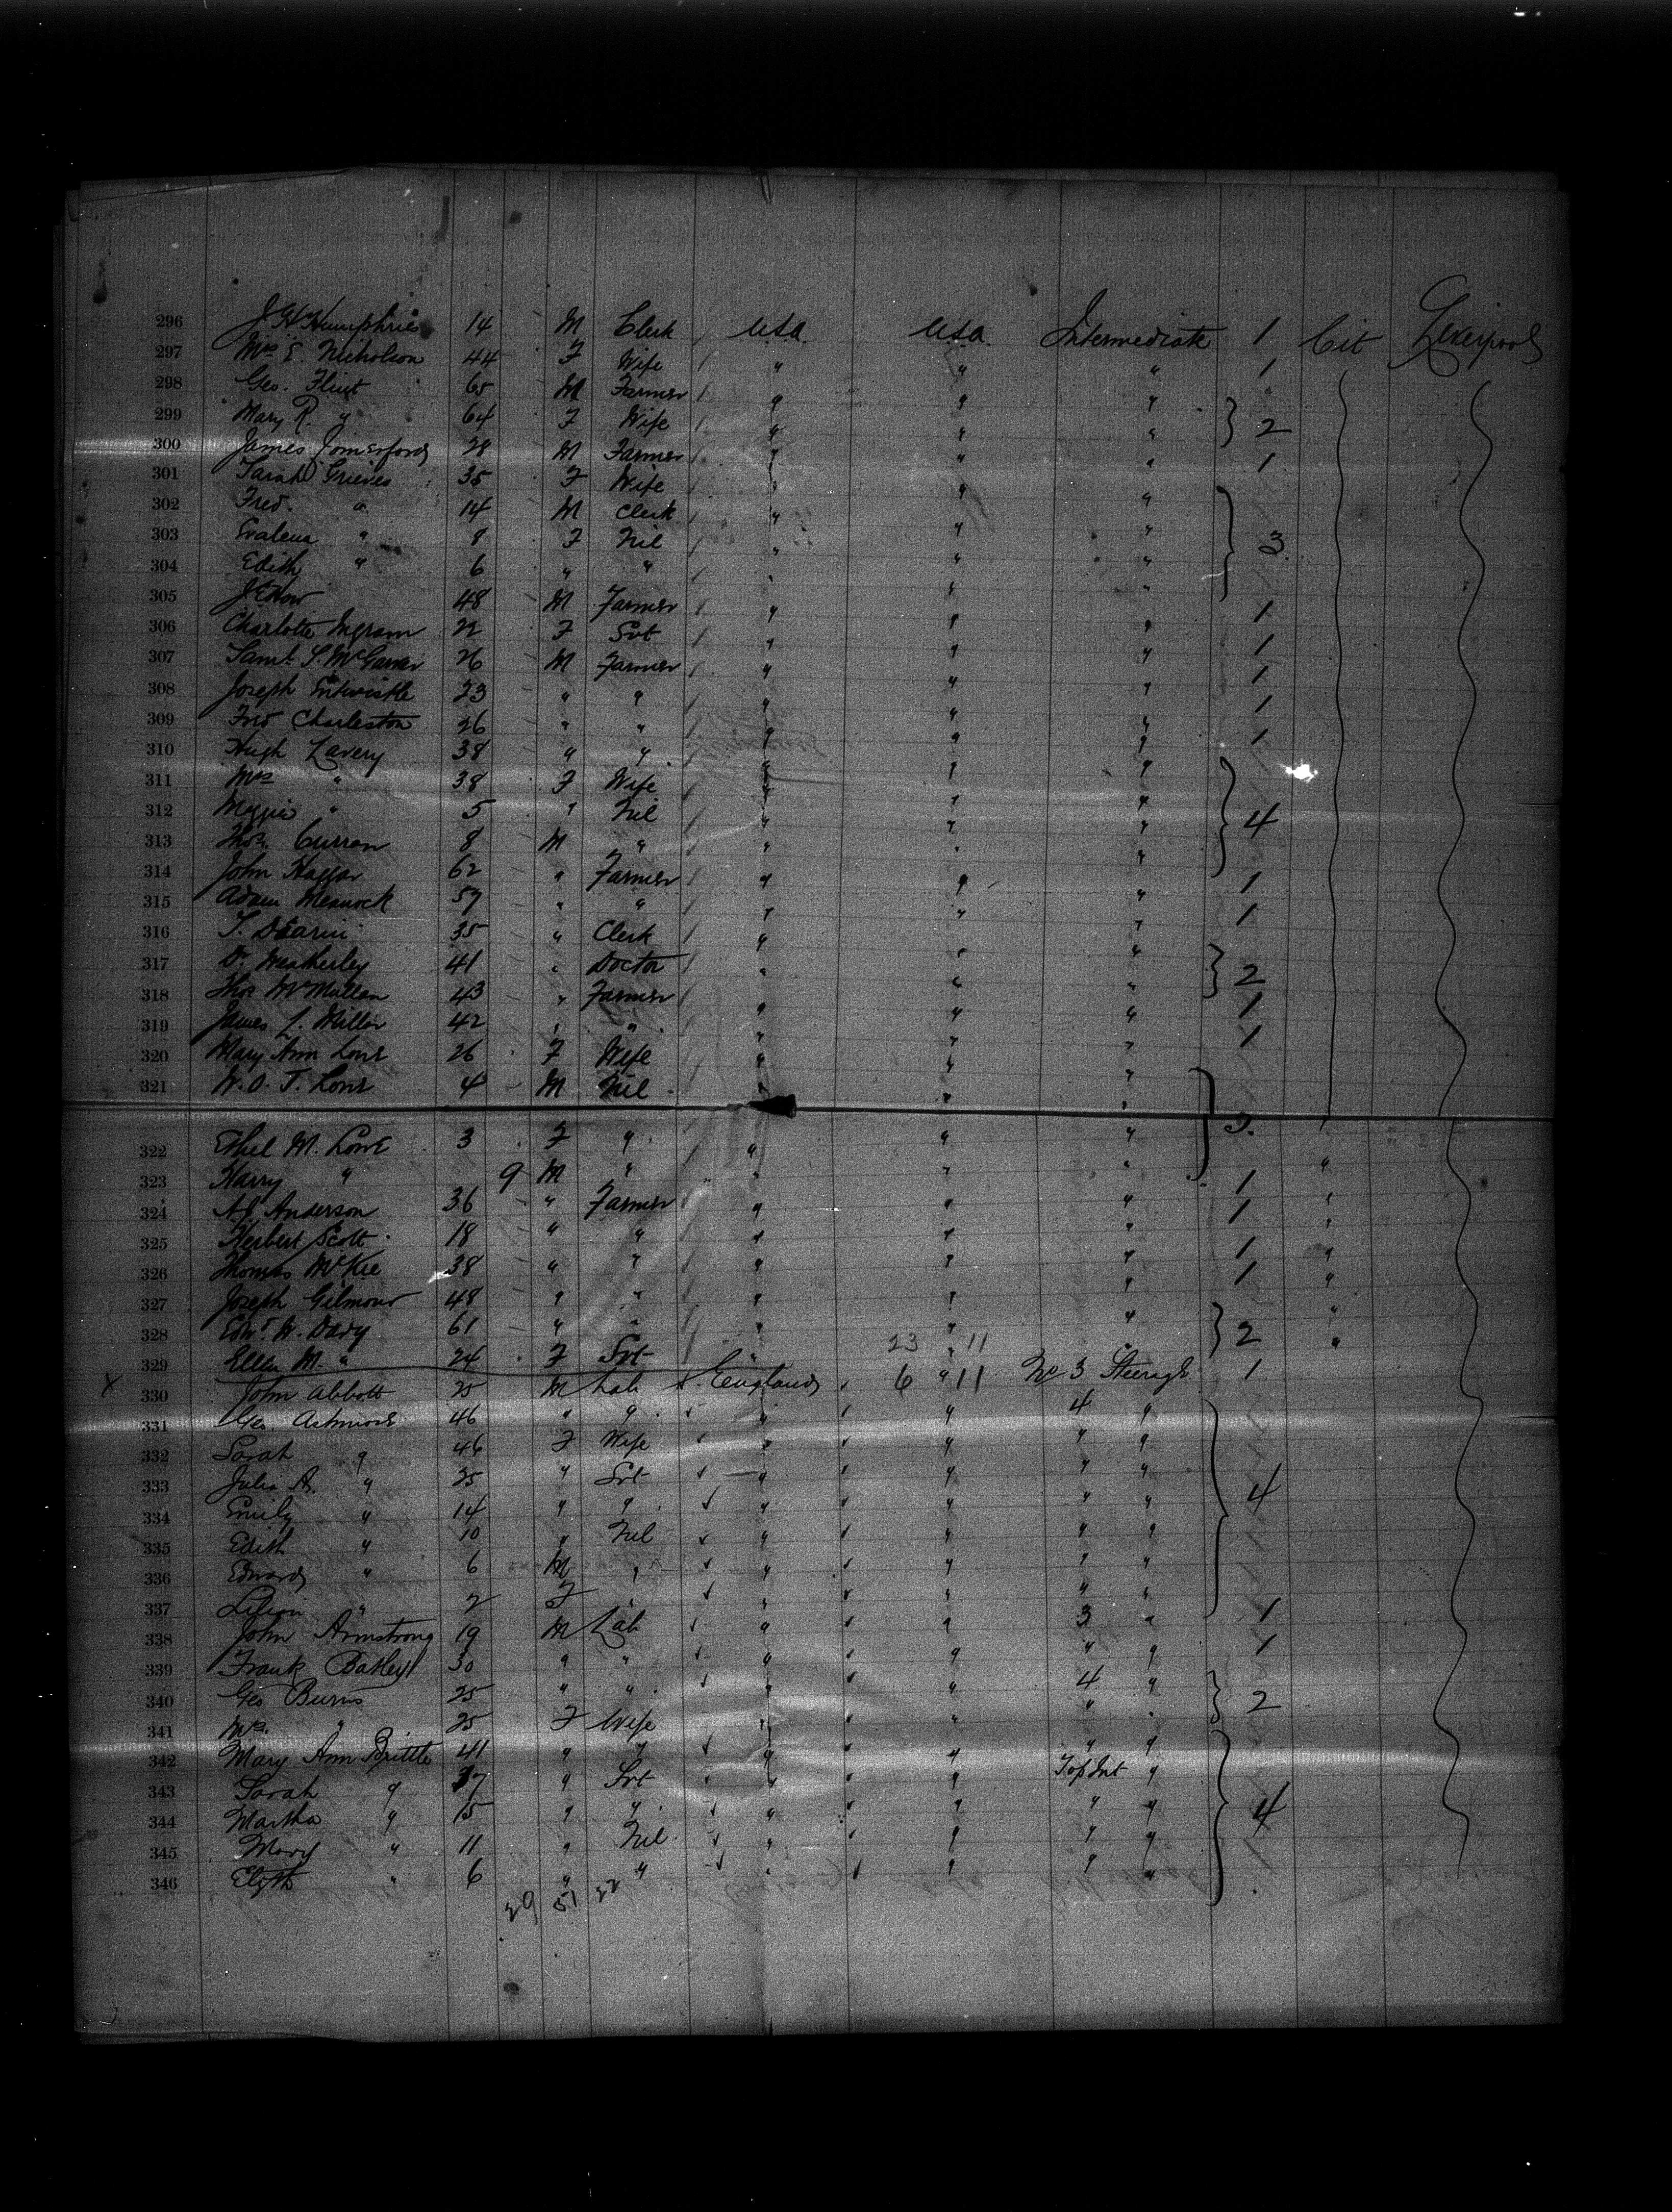 296 J H Humphries 14 M Clerk / U.S.A. U.S.A. Intermediate 1 Cit Liverpool
297 Mrs E. Nicholson 44 F Wife / " " " 1
298 Geo. Flint 65 M Farmer / " " "
299 Mary R. " 64 F Wife / " " " } 2
300 James 28 M Farmer / " " " 1
301 Sarah Grieves 35 F Wife / " " "
302 Fred. " 14 M Clerk / " " "
303 Evalena " 8 F Nil / " " " } 3
304 Edith " 6 " " / " " "
305 48 M Farmer / " " " 1
306 Charlotte Ingram 22 F Svt / " " " 1
307 Saml. S. 26 M Farmer / " " " 1
308 Joseph Entwistle 23 " " / " " " 1
309 Fred Charleston 26 " " / " " " 1
310 Hugh Lavery 38 " " / " " "
311 Mrs " 38 F Wife / " " "
312 Maggie " 5 " Nil / " " " } 4
313 Thos. Curran 8 M " / " " "
314 John Haggar 62 " Farmer / " " " 1
315 Adam 57 " " / " " " 1
316 T. 35 " Clerk / " " "
317 Dr. Weatherley 41 " Doctor / " " " } 2
318 Thos McMullan 43 " Farmer / " " " 1
319 James L. Miller 42 " " " " " 1
320 Mary Ann Lowe 26 F Wife " " "
321 W. O. T. Lowe 4 M Nil " " "
322 Ethel M. Lowe 3 F " / " " " } 3.
323 Harry " 9 M " " " " "
324 Anderson 36 " Farmer " " " 1 "
325 Herbert Scott 18 " " " " " 1 "
326 Thomas McKee 38 " " " " " 1 "
327 Joseph Gilmour 48 " " " " " 1 "
328 Edwd. W. Davy 61 " " " " " "
329 Ellen M. " 24 F Svt / " 23 " 11 } 2 "
330 John Abbott 25 M Lab England 6 " 11 No 3 Steerage 1
331 Geo. Ashmore 46 " " " " 4 "
332 Sarah " 46 F Wife " " " "
333 Julia A. " 25 " Svt " " " "
334 Emily " 14 " " " " " " } 4
335 Edith " 10 " Nil " " " "
336 Edward " 6 M " " " " "
337 Lilian " 2 F " " " " "
338 John Armstrong 19 M Lab " " 3 " 1
339 Frank Batley 30 " " " " " " 1
340 Geo Burns 25 " " " " 4 "
341 Mrs. " 25 F Wife " " " " } 2
342 Mary Ann Brittle 41 " " " " " "
343 Sarah " 37 " Svt " " Top Int "
344 Martha " 15 " " " " " " } 4
345 Mary " 11 " Nil " " " "
346 " 6 " " " " " "
29 51 22